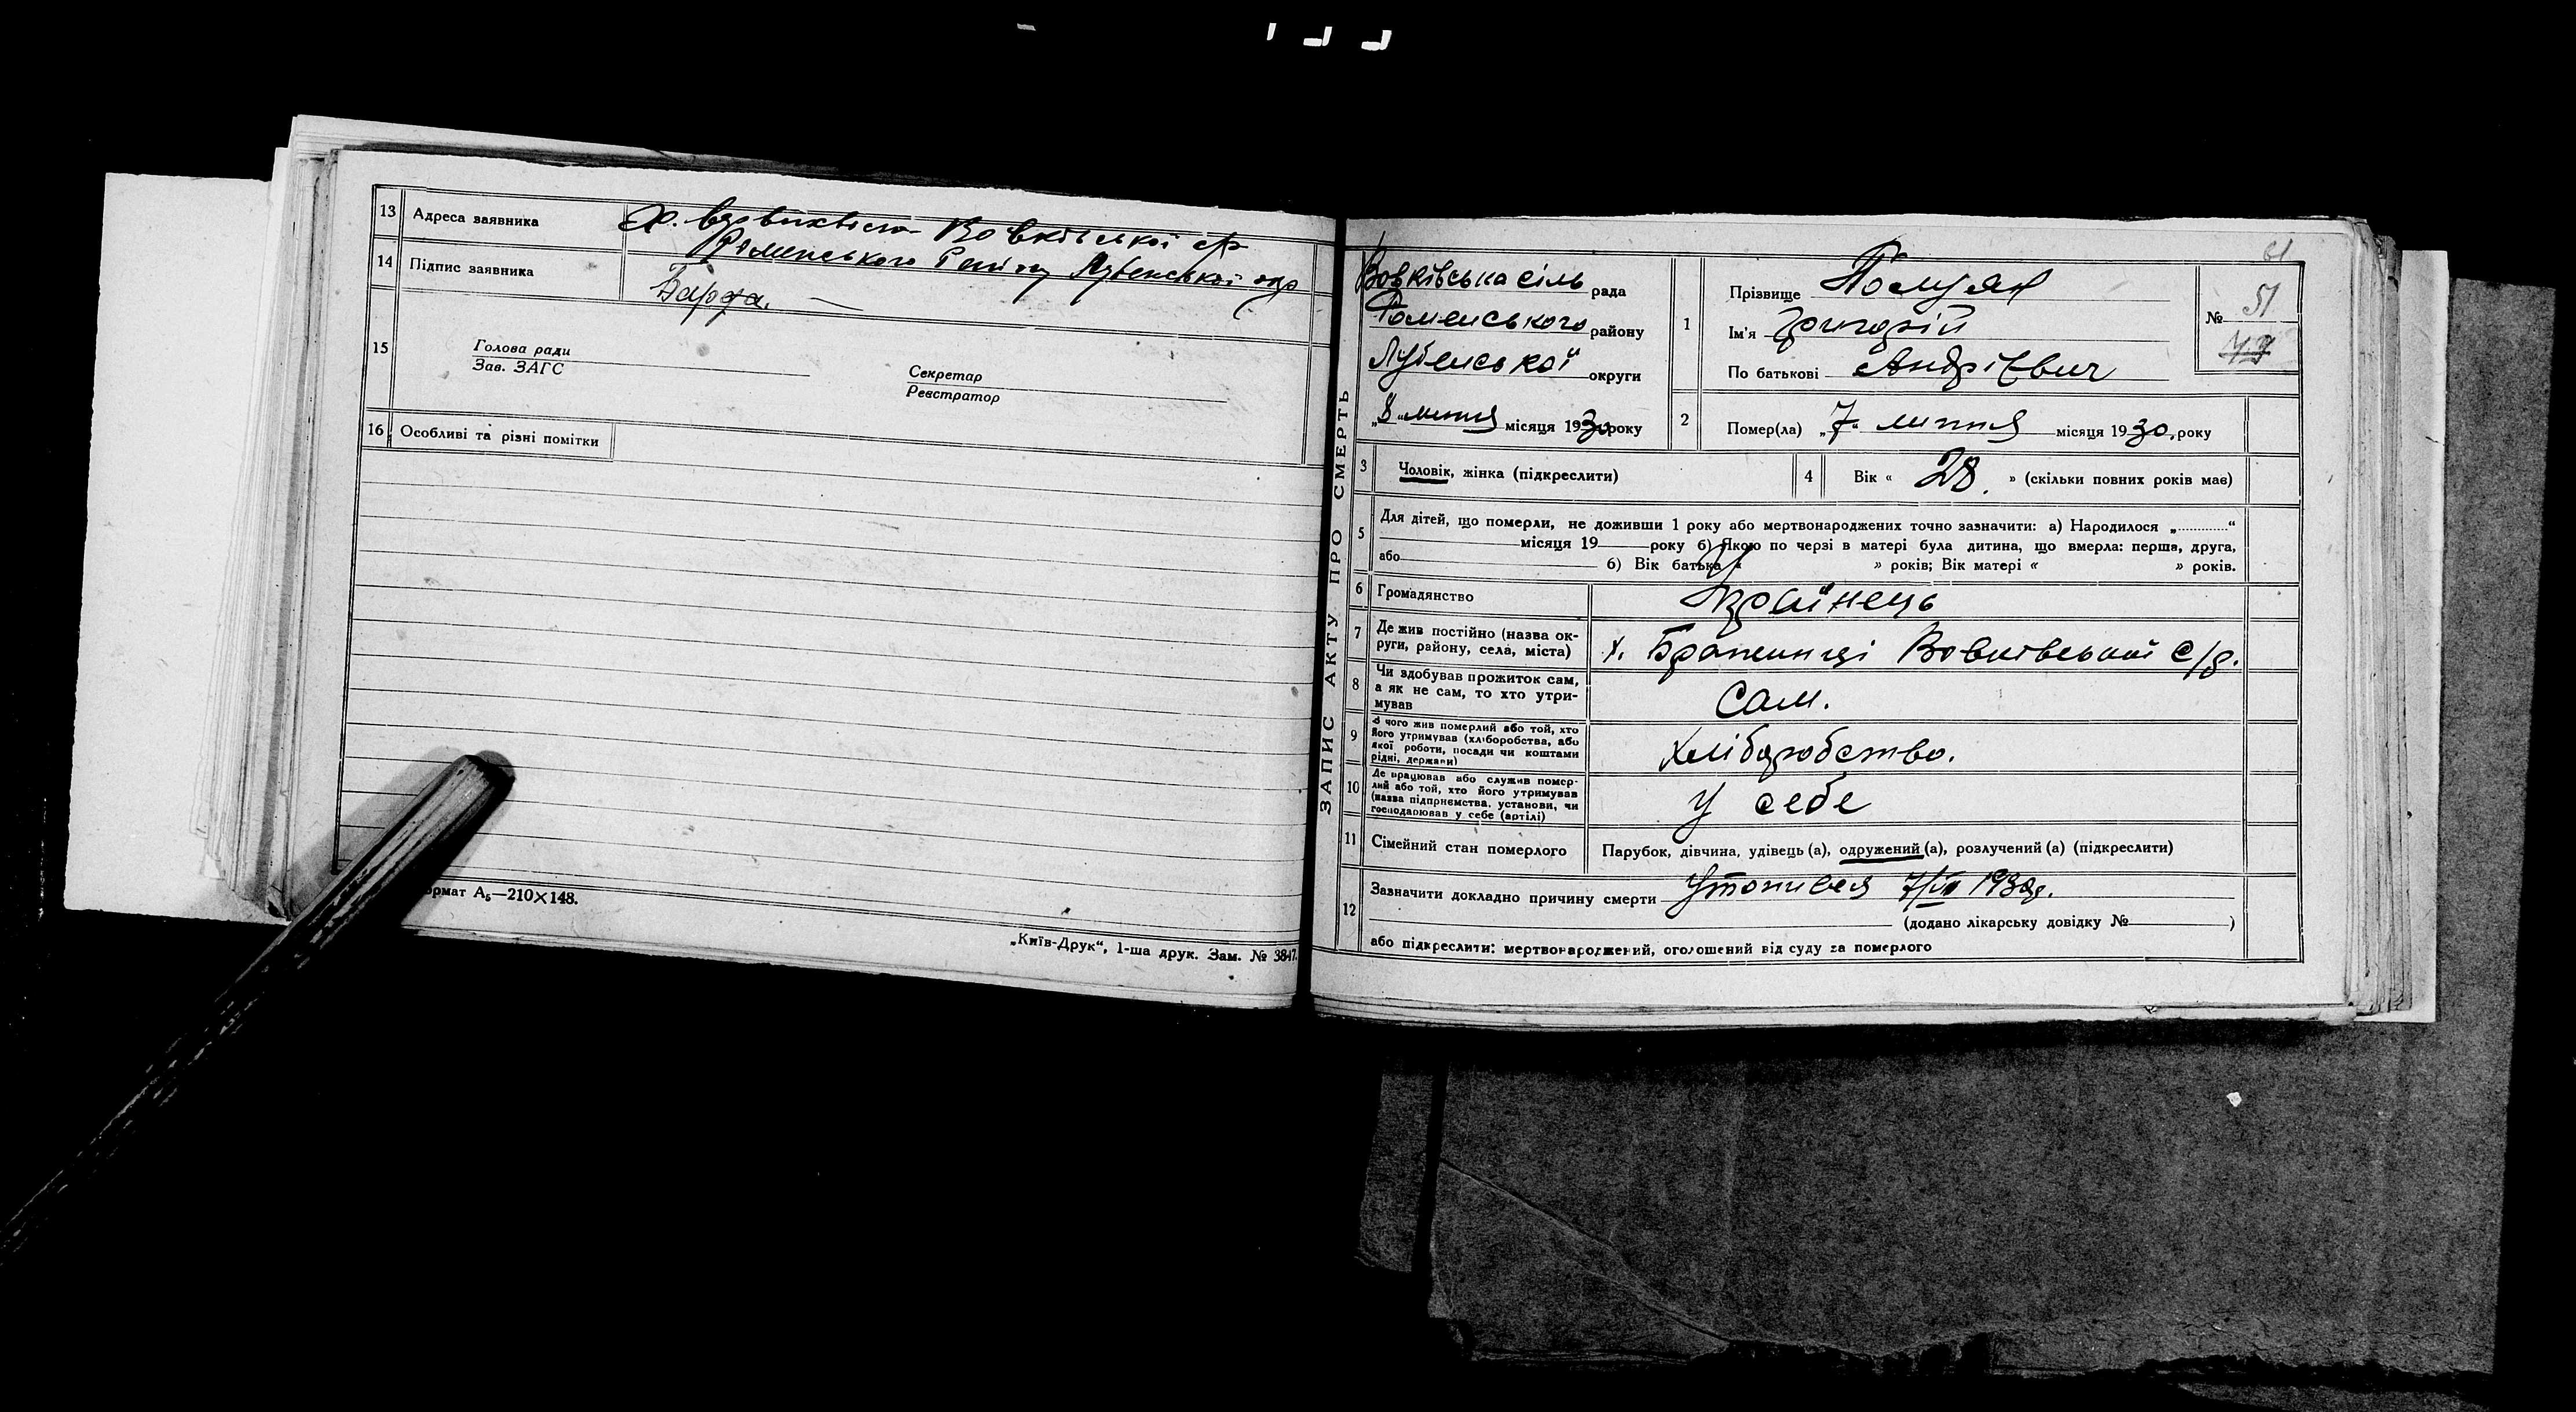 13 Адреса заявника Х. Вовківської с/р
Роменського району Лубенської окр
14 Підпис заявника
15
Голова ради
Зав. ЗАГС
Секретар
Реєстратор
16 Особливі та різні помітки
Формат А₅—210×148.
„Київ-Друк“, 1-ша друк. Зам. № 3847.
ЗАПИС АКТУ ПРО СМЕРТЬ
61
Вовківська сіль рада
Роменського району
Лубенської округи
„8“ липня місяця 1930 року
1 Прізвище
Ім'я Григорій
По батькові Андрієвич
№ 51
2 Помер(ла) „7“ липня місяця 1930 року
3 Чоловік, жінка (підкреслити)
4 Вік « 28. » (скільки повних років має)
5 Для дітей, що померли, не доживши 1 року або мертвонароджених точно зазначити: а) Народилося „............“
місяця 19 року б) Якою по черзі в матері була дитина, що вмерла: перша, друга,
або б) Вік батька « » років; Вік матері « » років.
6 Громадянство Українець
7 Де жив постійно (назва ок-
руги, району, села, міста) х. Вовківської с/р.
8 Чи здобував прожиток сам,
а як не сам, то хто утри-
мував Сам.
9 З чого жив померлий або той, хто
його утримував (хліборобства, або
якої роботи, посади чи коштами
рідні, держави) Хліборобство.
10 Де працював або служив помер-
лий або той, хто його утримував
(назва підприємства, установи, чи
господарював у себе (артілі) У себе
11 Сімейний стан померлого Парубок, дівчина, удівець (а), одружений (а), розлучений (а) (підкреслити)
12 Зазначити докладно причину смерти Утопився 7/VII 1930р.
(додано лікарську довідку № )
або підкреслити: мертвонароджений, оголошений від суду за померлого